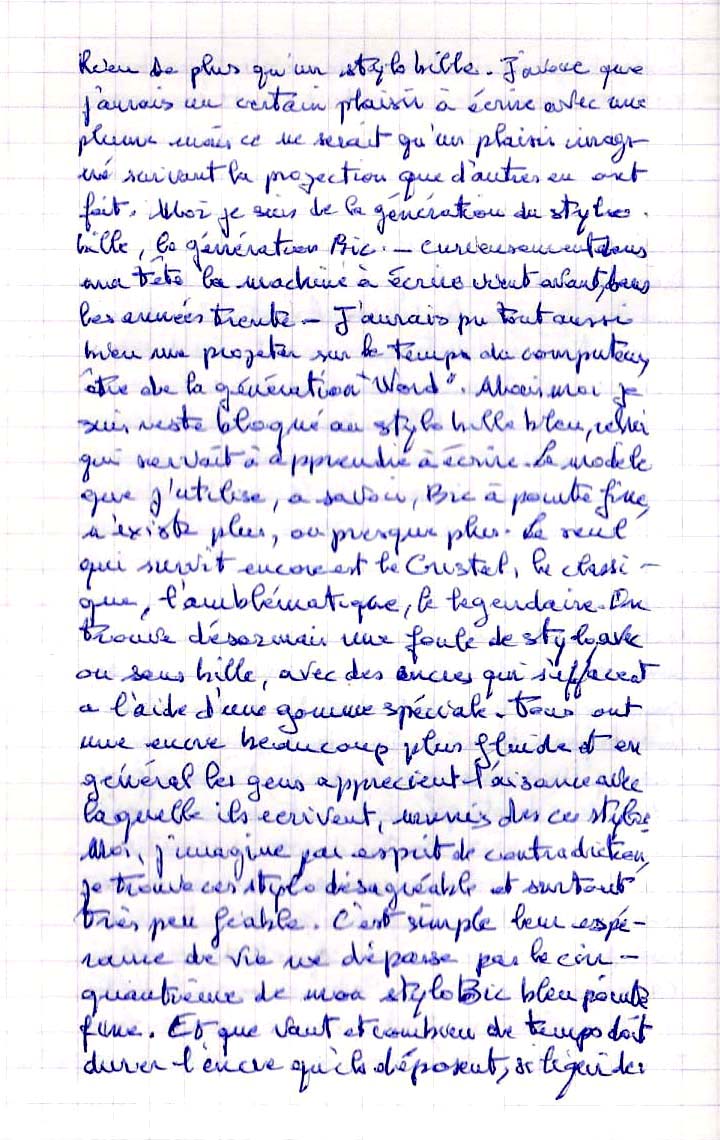 Rien de plus qu'un stylo bille. J'avoue que
j'aurais un certain plaisir à écrire avec une
plume mais ce ne serait qu'un plaisir imagi-
né suivant la projection que d'autres en ont
fait. Moi je suis de la génération du stylo
bille, la génération Bic. – curieusement dans
ma tête la machine à écrire vient avant, dans
les années trente – J'aurais pu tout aussi
bien me projeter sur le temps du computeur,
être de la génération "Word". Mais moi je
suis resté bloqué au stylo bille bleu, celui
qui servait à apprendre à écrire. Le modèle
que j'utilise, a savoir, Bic à pointe fine,
n'existe plus, ou presque plus. Le seul
qui survit encore est le Cristal, le classi-
que, l'emblématique, le legendaire. On
trouve désormais une foule de stylo, avec
ou sans bille, avec des encres qui s'effacent
a l'aide d'une gomme spéciale. Tous ont
une encre beaucoup plus fluide et en
général les gens apprecient l'aisance avec
laquelle ils ecrivent, munis des ces stylos.
Moi, j'imagine par esprit de contradiction,
je trouve ces stylo désagréable et surtout
très peu fiable. C'est simple leur espé-
rance de vie ne dépasse pas le cin-
quantième de mon stylo Bic bleu pointe
fine. Et que vaut et combien de temps doit
durer l'encre qu'ils déposent, si